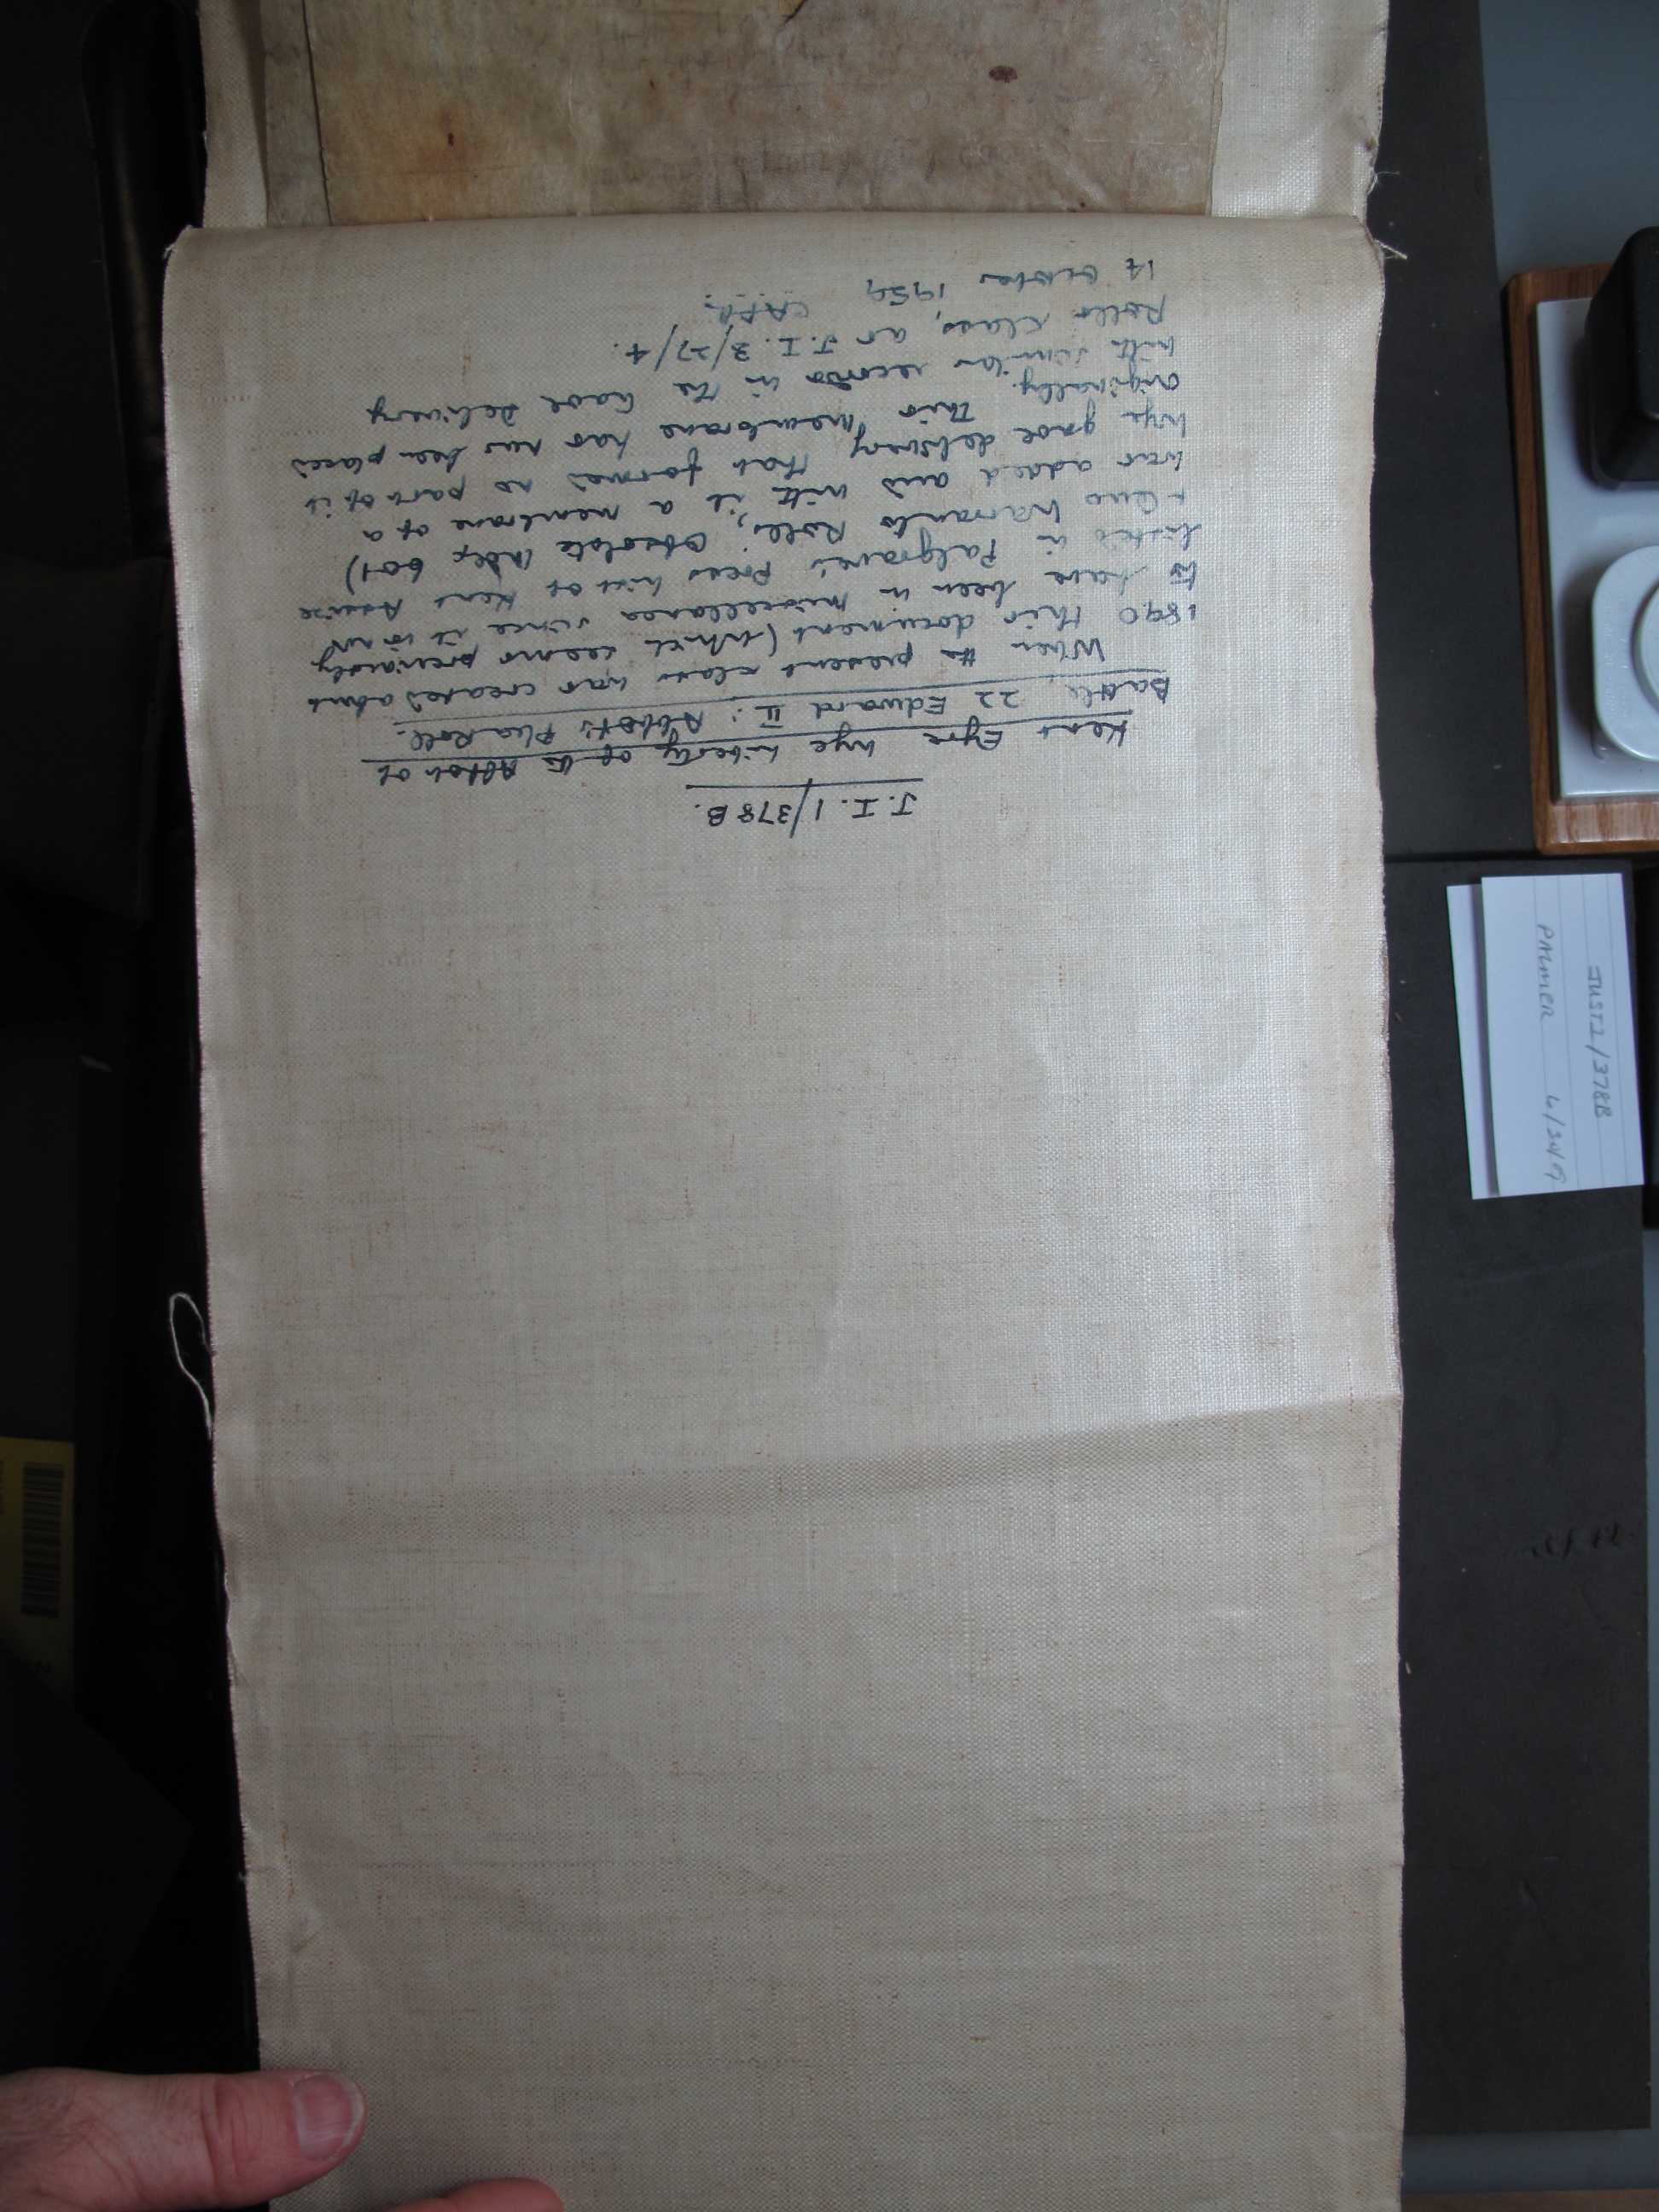 J.I. 1/378 B.
Kent Eyre Wye Liberty of the Abbot of
Battle, 22 Edward II: Abbot's Plea Roll.
When the present class was created about
1890 this document (which seems previously
to have been in miscellanea since it is not
listed in Palgrave's Press list of Kent Assize
+ Quo Warranto Rolls, Obsolete Index 601)
was added and with it a membrane of a
Wye gaol delivery that formed no part of it
originally. This membrane has now been placed
with similar records in the Gaol Delivery
Rolls class, as J.I. 3/27/4.
14 October 1959
JUST1/378B
PALMER